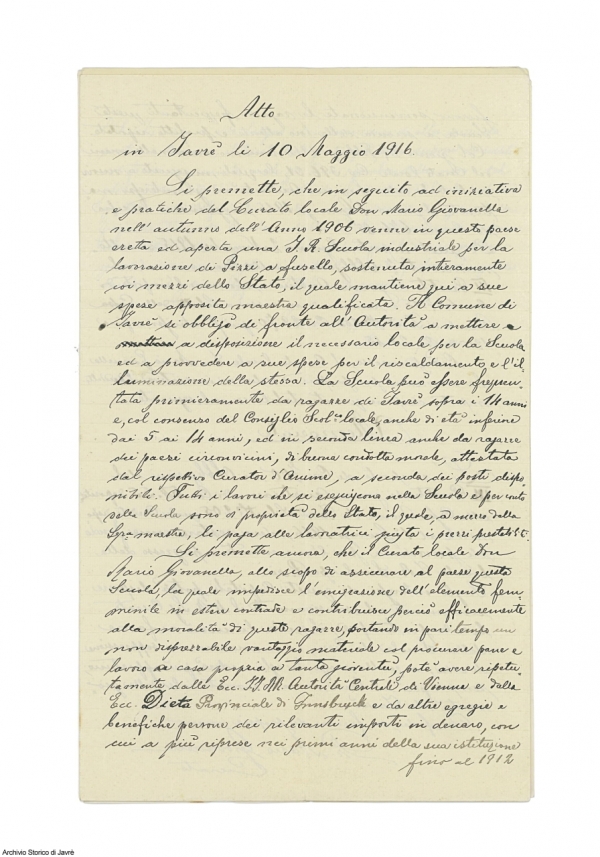 Atto
in Javrè li 10 Maggio 1916.
Si premette, che in seguito ad iniziativa
e pratiche del Curato locale Don Mario Giovanella
nell'autunno dell'Anno 1906 venne in questo paese
eretta ed aperta una I. R. Scuola industriale per la
lavorazione di Pizzi a fusello, sostenuta intieramente
coi mezzi dello Stato, il quale mantiene qui a sue
spese apposita maestra qualificata. Il Comune di
Javrè si obbligò di fronte all'Autorità a mettere
a disposizione il necessario locale per la Scuola
ed a provvedere a sue spese per il riscaldamento e l'il-
luminazione della stessa. La Scuola può essere frequen-
tata primieramente da ragazze di Javrè sopra i 14 anni
e, col consenso del Consiglio Scol.co locale, anche di età inferiore
dai 5 ai 14 anni, ed in seconda linea anche da ragazze
dei paesi circonvicini, di buona condotta morale, attestata
dal rispettivo Curator d'Anime, a seconda dei posti dispo-
nibili. Tutti i lavori che si eseguiscono nella Scuola e per conto
della Scuola sono di proprietà dello Stato, il quale, a mezzo della
Sig.ra maestra, li paga alle lavoratrici giusta i prezzi prestabiliti.
Si premette ancora, che il Curato locale Don
Mario Giovanella, allo scopo di assicurare al paese questa
Scuola, la quale impedisce l'emigrazione dell'elemento fem-
minile in estere contrade e contribuisce perciò efficacemente
alla moralità di queste ragazze, portando in pari tempo un
non disprezzabile vantaggio materiale col procurare pane e
lavoro in casa propria a tanta gioventù, potè avere ripetu-
tamente dalle Ecc. I. I. R. R. Autorità Centrali di Vienna e dalla
Ecc. Dieta Provinciale di Innsbruck e da altre egregie e
benefiche persone dei rilevanti importi in denaro, con
cui a più riprese nei primi anni della sua istituzione
fino al 1912
Archivio Storico di Javrè